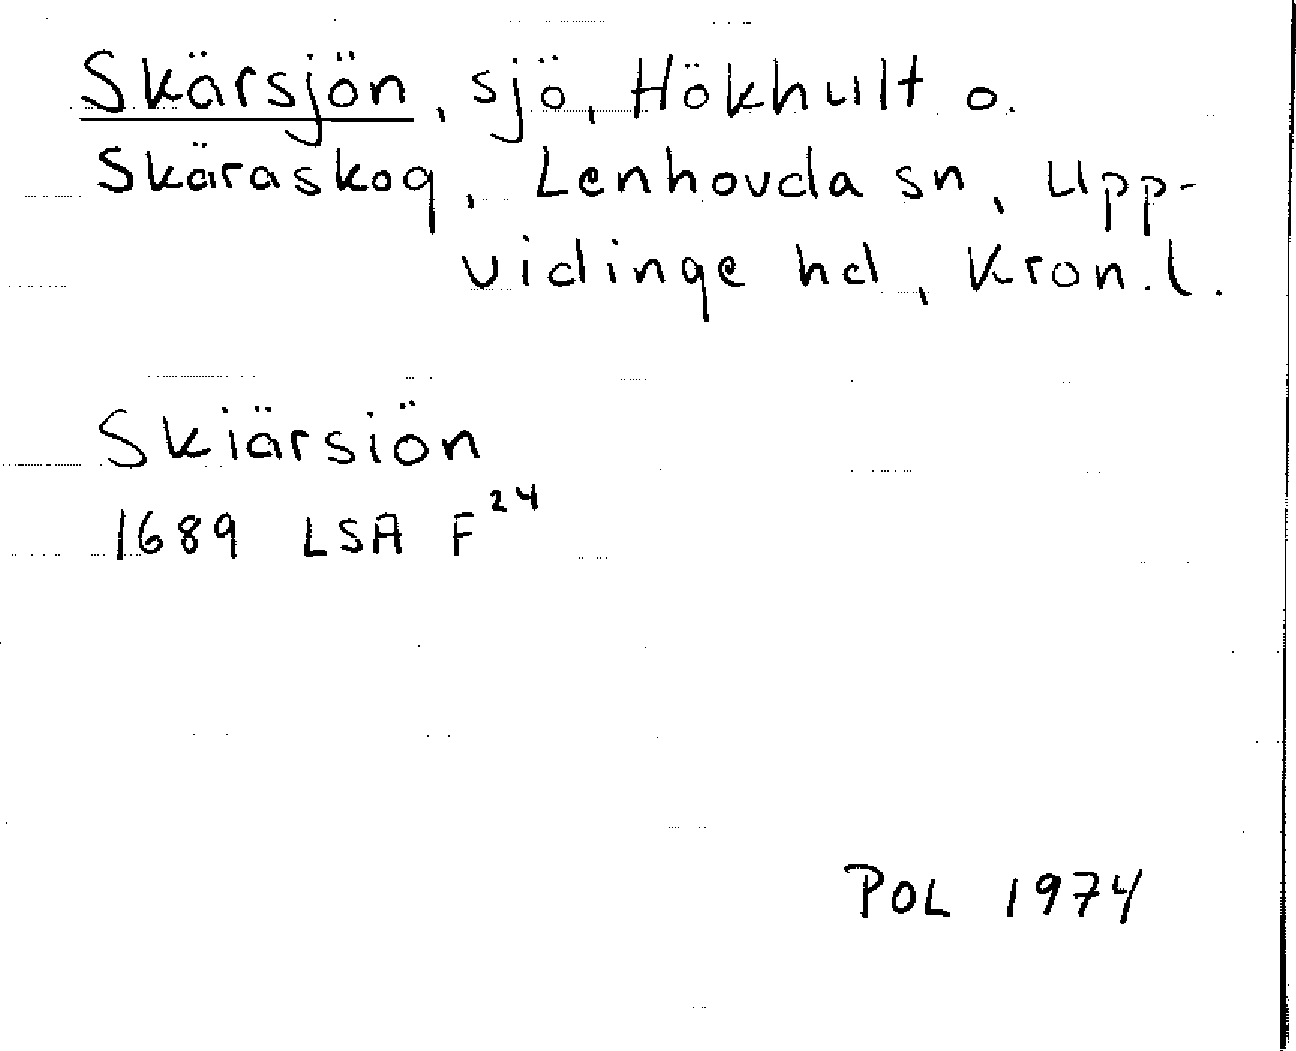 Skärsjön, sjö, Hökhult o.
Skäraskog, Lenhovda sn, Upp-
vidinge hd, Kron.l.
Skiärsiön
1689 LSA F²⁴
POL 1974